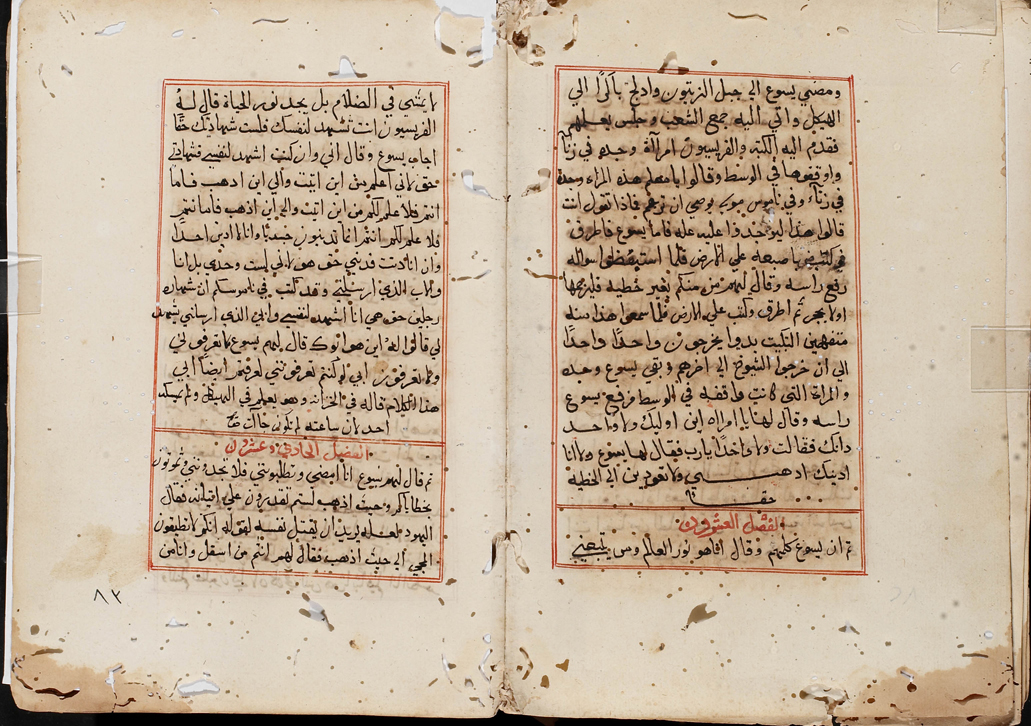 ومضي يسوع الي جبل الزيتون وادلج باكرًا الي
الهيكل واتي اليه جمع الشعب وجلس يعلمهم
فقدم اليه الكتبه والفريسيون امرآة وجدت في زناء
واوقفوها في الوسط وقالوا يا معلم هذه المراه وجدة
في زناء وفي ناموس موسي يوصي ان ترجم فاذا تقول انت
قالوا هذا ليجدوا عليه عله فاما يسوع فاطرق
يكتب باصبعه علي الارض فلما استبطوا سواله
رفع راسه وقال لهم من منكم بغير خطيه فليرجمها
اولا بحجر ثم اطرق وكتب علي الارض فلما سمعوا هذا منه
متفهمين التبكيت بدوا يخرجون واحدًا واحدًا
الي ان خرجوا الشيوخ الي اخرهم وبقي يسوع وحده
والمراة التي كانت واقفه في الوسط فرفع يسوع
راسه وقال لها يا امراه اين اوليك ولا واحد
دانك فقالت ولا واحدًا يارب فقال لها يسوع ولا انا
ادينك اذهبي ولا تعودين الي الخطيه
الفصل العشرون
ثم ان يسوع كلمهم وقال انا هو نور العالم ومن يتبعني
لا يمشي في الضلام بل يجد نور الحياة قال له
الفريسيون انت تشهد لنفسك فليست شهادتك حقا
اجاب يسوع وقال اني وان كنت اشهد لنفسي فشهادتي
حق لاني اعلم من اين اتيت والي اين اذهب فاما
انتم فلا علم لكم من اين اتيت والي اين اذهب فاما انتم
فلا علم لكم انتم انما تدينون جسديا وانا لا ادين احدًا
وان انا دنت فديني حق هو لاني لست وحدي بل انا
والاب الذي ارسلني وقد كتب في ناموسكم ان شهادة
رجلين حق هي انا اشهد لنفسي وابي الذي ارسلني شهد
لي قالوا له اين هو ابوك قال لهم يسوع لا تعرفوني
ولا تعرفون ابي لو كنتم تعرفونني لعرفتم ايضًا ابي
هذا الكلام قاله في الخزانه وهو يعلم في الهيكل ولم يمسكه
احد لان ساعته لم تكون جاات
الفصل الحادي وعشرون
ثم قال لهم يسوع انا امضي وتطلبونني فلا تجدونني وتموتون
بخطاياكم وحيث اذهب لستم تقدرون علي اتيانه فقال
اليهود لعله يريد ان يقتل نفسه لقوله انكم لا تطيقون
المجي الي حيث اذهب فقال لهم انتم من اسفل وانا من
٨٢